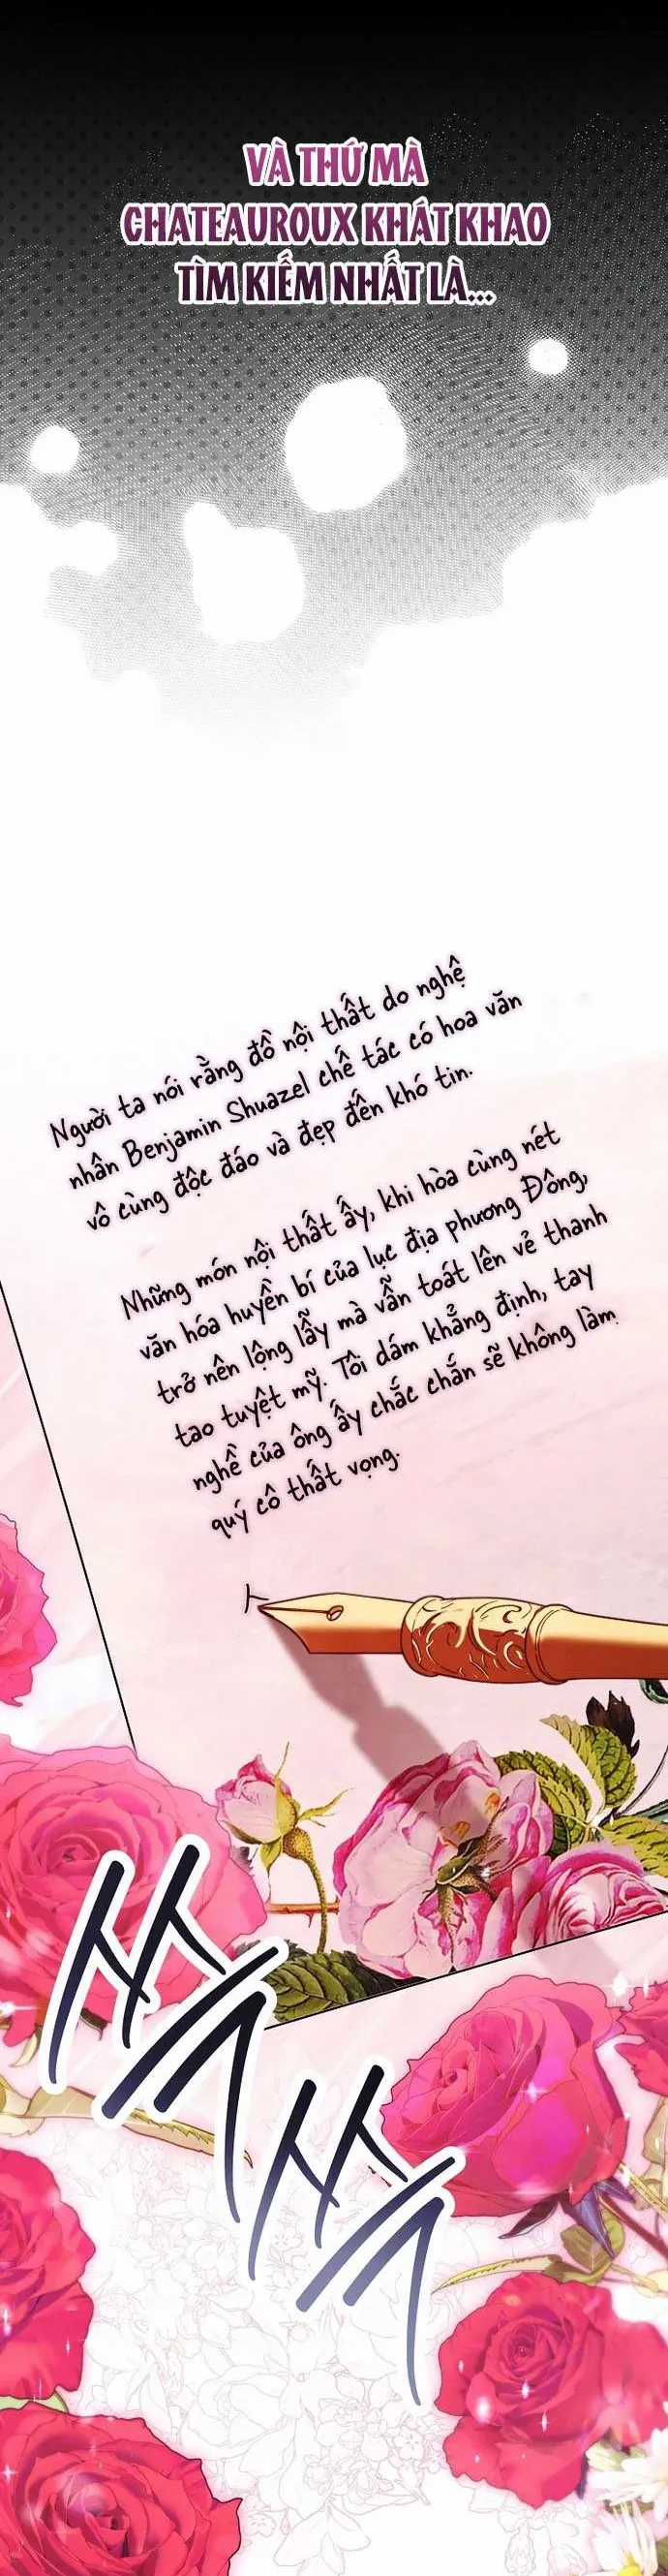 VÀ THỨ MÀ
CHATEAUROUX KHÁT KHAO
TÌM KIẾM NHẤT LÀ...
Người ta nói rằng đồ nội thất do nghệ
nhân Benjamin Shuazel chế tác có hoa văn
vô cùng độc đáo và đẹp đến khó tin.
Những món nội thất ấy, khi hòa cùng nét
văn hóa huyền bí của lục địa phương Đông,
trở nên lộng lẫy mà vẫn toát lên vẻ thanh
tao tuyệt mỹ. Tôi dám khẳng định, tay
nghề của ông ấy chắc chắn sẽ không làm
quý cô thất vọng.
쓱
쓱